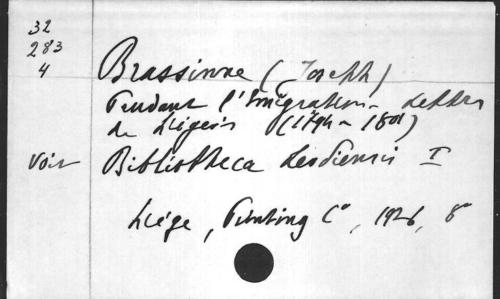 32
283
4
Brassinne (Joseph)
Pendant l'émigration - Lettres
de Liégeois (1794-1801)
Voir Bibliotheca Leodiensis I
Liége, Printing Co, 1926, 8°